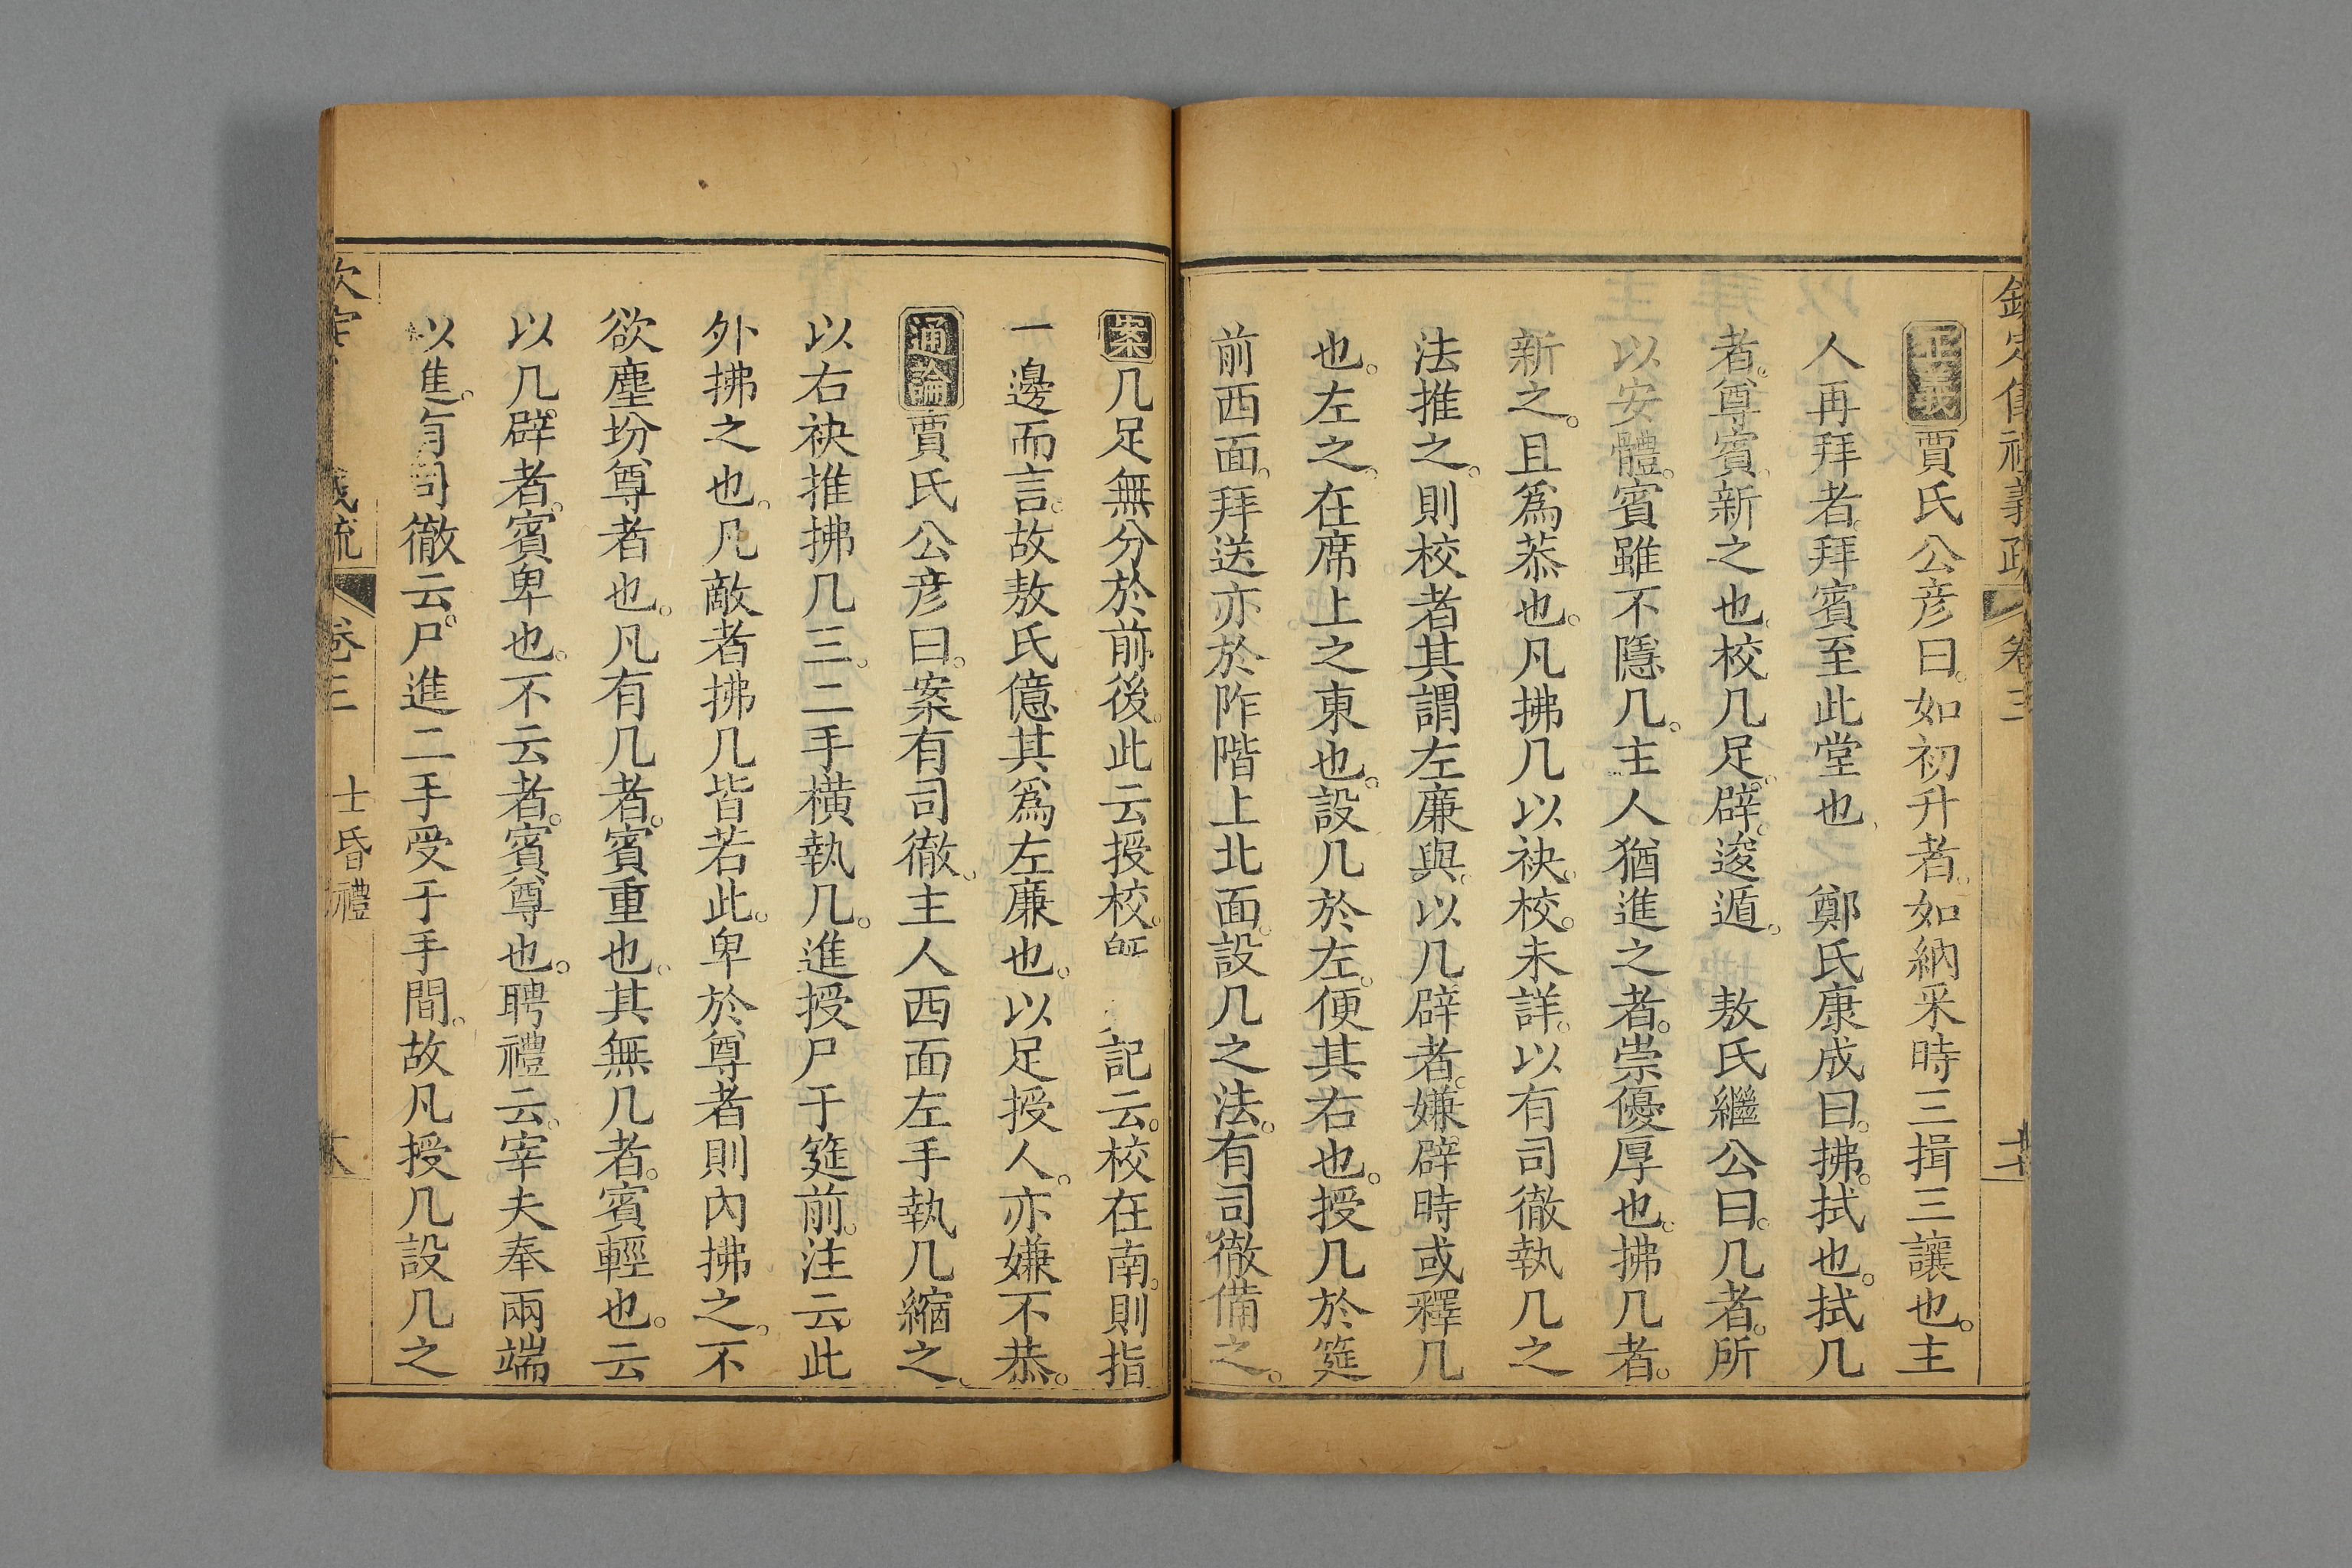 正義賈氏公彦曰。如初升者。如納采時三揖三讓也。主
人再拜者。拜賓至此堂也、　鄭氏康成曰。拂。拭也。拭几
者。尊賓新之也。校几足。辟。逡遁。　敖氏繼公曰。几者。所
以安體。賓雖不隱几。主人猶進之者。崇優厚也。拂几者。
新之。且爲恭也。凡拂几以袂。校。未詳。以有司徹執几之
法推之。則校者其謂左廉與。以几辟者。嫌辟時或釋几
也。左之。在席上之東也。設几於左。便其右也。授几於筵
前西面。拜送亦於阼階上北面。設几之法。有司徹備之。
案几足無分於前後。此云授校。記云。校在南。則指
一邊而言。故敖氏億其爲左廉也。以足授人。亦嫌不恭。
通論賈氏公彦曰。案有司徹。主人西面左手執几縮之、
以右袂推拂几三。二手橫執几。進授尸于筵前。注云。此
外拂之也。凡敵者拂几皆若此。卑於尊者則內拂之。不
欲塵坋尊者也。凡有几者。賓重也。其無几者。賓輕也。云
以几辟者。賓卑也。不云者。賓尊也。聘禮云。宰夫奉兩端
以進。有司徹云。尸進二手受于手間。故凡授几設几之
卷三　士昏禮